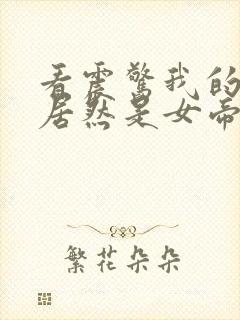 看震驚我的
居然是女帝
繁花朵朵